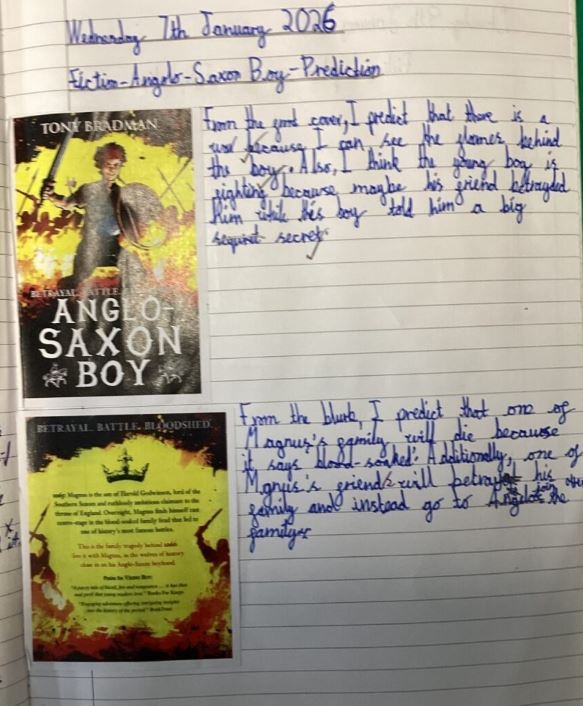 Wednesday 7th January 2026
Fiction-Anglo-Saxon Boy-Prediction
TONY BRADMAN
BETRAYAL. BATTLE.
ANGLO-
SAXON
BOY
From the front cover, I predict that there is a
war because I can see the flames behind
the boy. Also, I think the young boy is
fighting because maybe his friend betrayed
him while this boy told him a big
sequret secret.
BETRAYAL. BATTLE. BLOODSHED.
Magnus is the son of Harold Godwinson, lord of the
Southern Saxons and ruthlessly ambitious claimant to the
throne of England. Overnight, Magnus finds himself cast
centre-stage in the blood-soaked family feud that led to
one of history's most famous battles.
This is the family tragedy behind 1066:
live it with Magnus, as the wolves of history
close in on his Anglo-Saxon boyhood.
Praise for Viking Boy:
"A pacey tale of blood, fire and vengeance ... it has thrs
and peril that young readers love." Books For Keeps
"Engaging adventure offering intriguing insights
into the history of the period." BookTrust
From the blurb, I predict that one of
Magnus's family will die because
it says blood-soaked'. Additionally, one of
Mgnus's friends will betray his
family and instead go to the other
family.